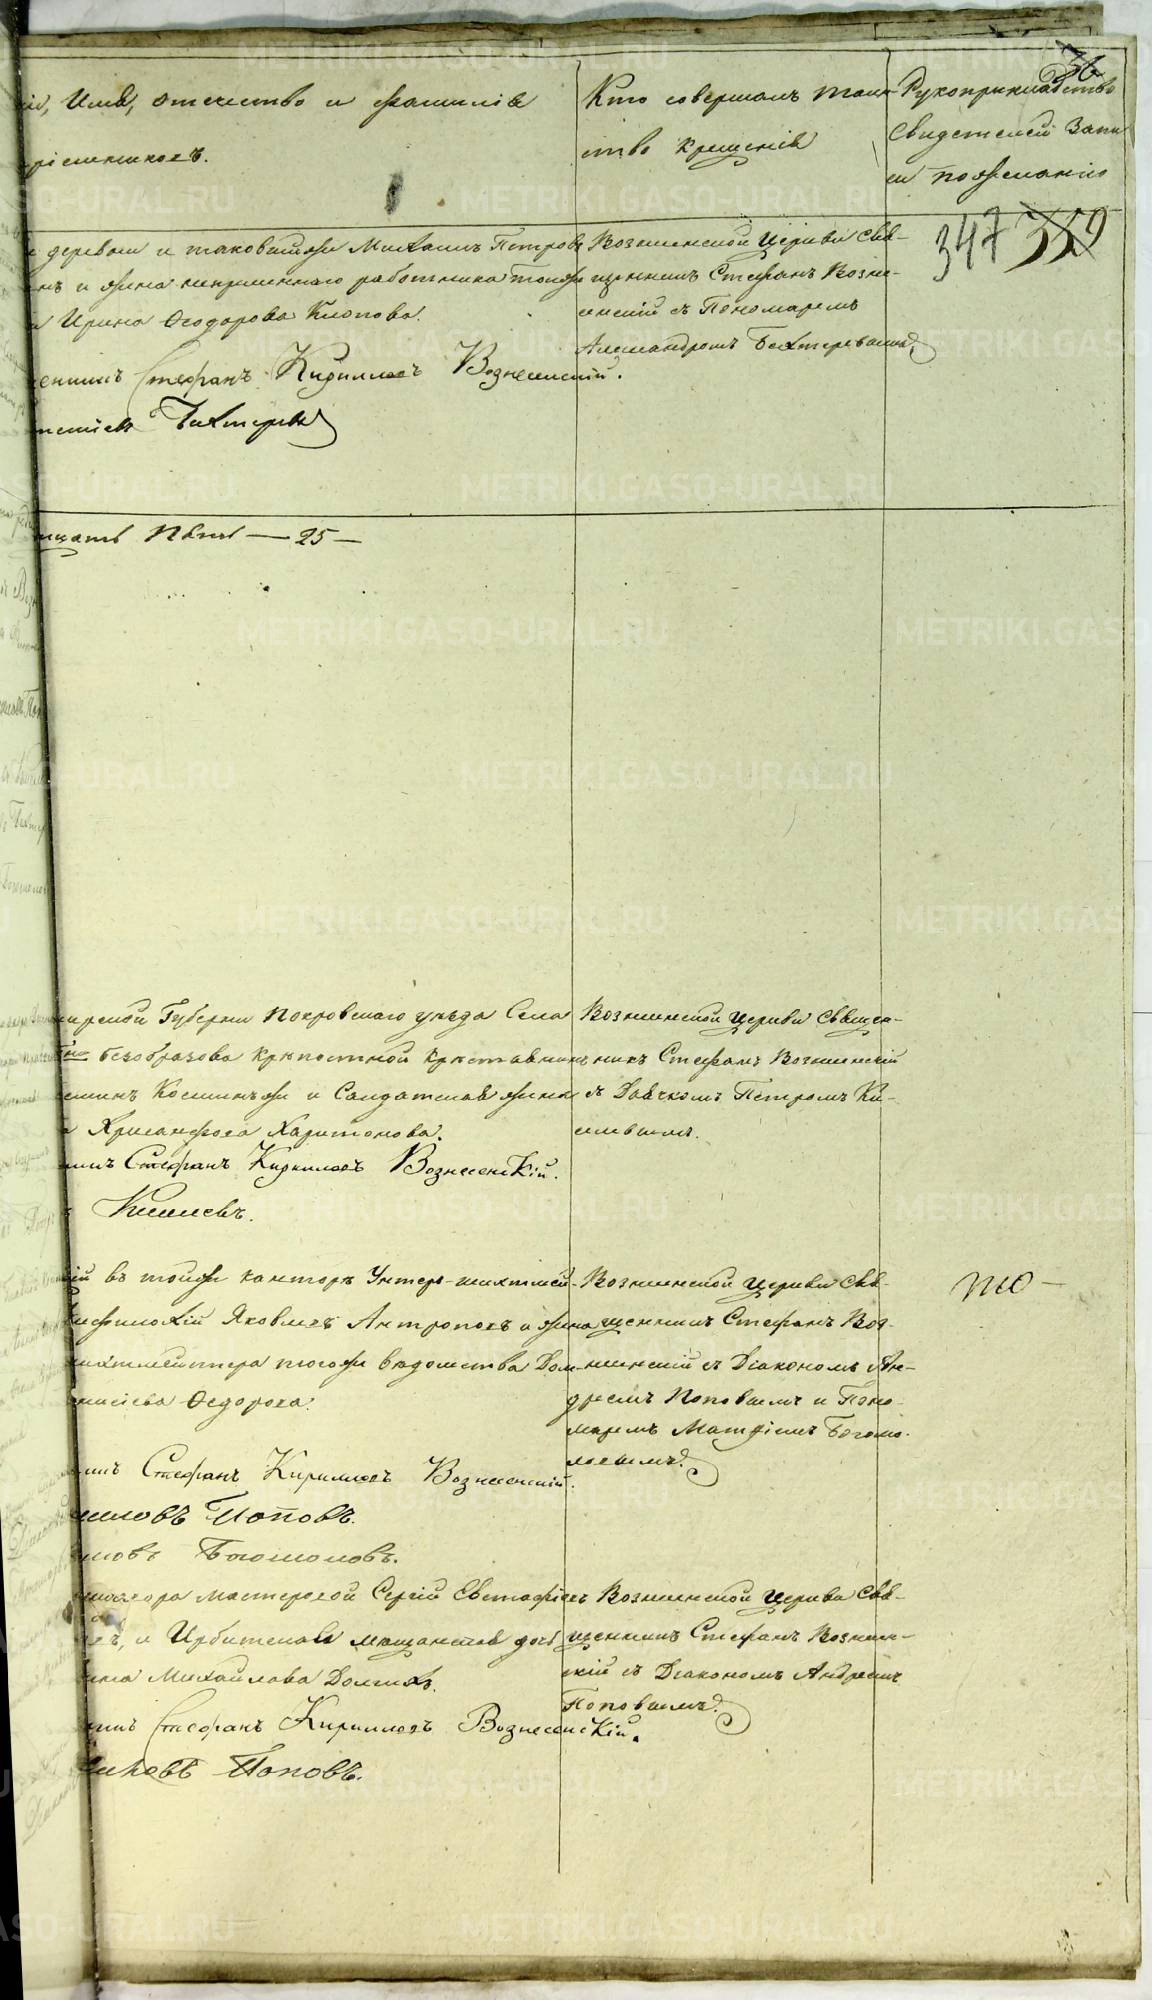 36
Имя, отчество и фамилія
воспріемниковъ.
Кто совершалъ таин-
ство крещенія
Рукоприкладство
свидетелей запи
си по желанію
347 359
деревни и таковыйже Михаилъ Петровъ
и жена непременнаго работника тойже
Ирина Ѳеодорова Клопова.
Стефанъ Кирилловъ Вознесенскій.
Бахтеревъ
Вознесенской Церкви Свя-
щенникъ Стефанъ Возне-
сенскій съ Пономаремъ
Александромъ Бахтеревымъ
пять — 25 —
Губерніи Покровскаго уезда Села
безобразова крепостной крестьянинъ
Косминъ же и Солдатская жена
Хрисанфова Харитонова.
Стефанъ Кирилловъ Вознесенскій.
Киселевъ.
Вознесенской Церкви Свяще-
нникъ Стефанъ Вознесенскій
съ Дьячкомъ Петромъ Ки-
селевымъ.
въ тойже канторе Унтеръ-шихтмей-
Яковлевъ Антроповъ и жена
шихтмейстера тогоже ведомства Дом-
Ѳедорова.
Стефанъ Кирилловъ Вознесенскій.
Поповъ.
Богомоловъ.
Вознесенской Церкви Свя-
щенникъ Стефанъ Воз-
несенскій съ Діакономъ Ан-
дреемъ Поповымъ и Поно-
маремъ Матфіемъ Богомо-
ловымъ.
мастеровой Сергій Евстафіевъ
и Ирбитская мещанская дочь
Михайлова Долгихъ.
Стефанъ Кирилловъ Вознесенскій.
Поповъ.
Вознесенской Церкви Свя-
щенникъ Стефанъ Вознесен-
скій съ Діакономъ Андреемъ
Поповымъ.
METRIKI.GASO-URAL.RU